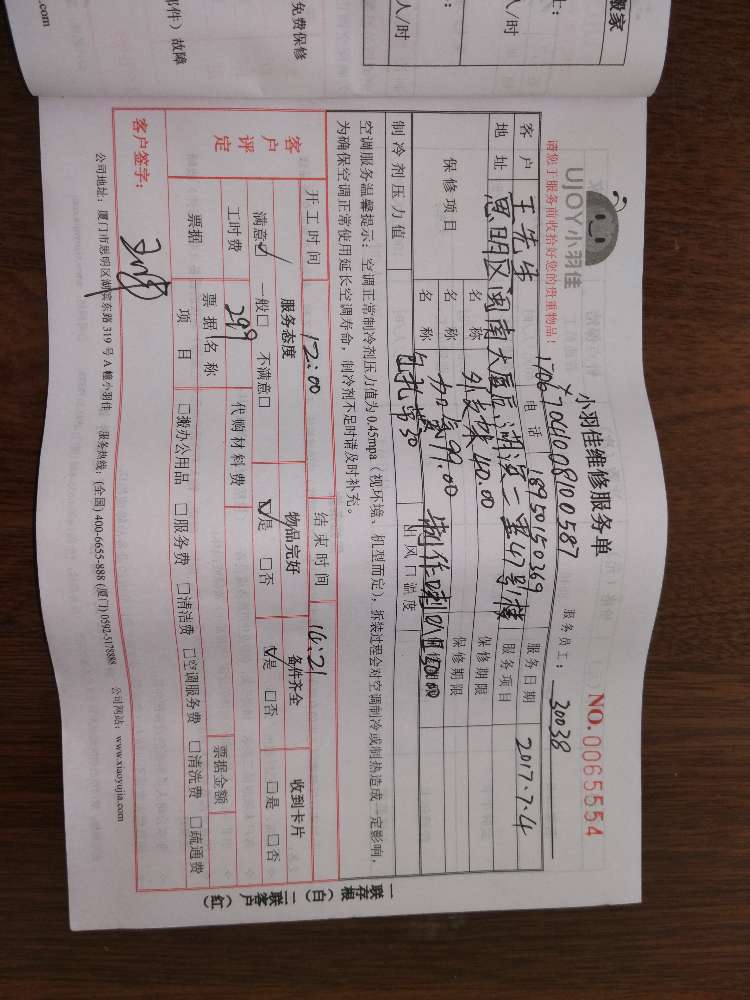 搬家
士：
人/时
人/时
免费保修
部件）故障
.com
UJOY小羽佳
小羽佳维修服务单
NO.0065554
请您于服务前收拾好您的贵重物品！
1707041008100587
服务员工：30038
客户 王先生 电话 18950150369 服务日期 2017.7.4
地址 思明区闽南大厦后湖滨一里47号楼 服务项目
保修项目 名称 外支架 40.00 保修期限
名称 加氧99.00 制作喇叭口50.00 保修期限
制冷剂压力值 名称 包扎带30 出风口温度
空调服务温馨提示：空调正常制冷剂压力值为0.45mpa（视环境、机型而定），拆装过程会对空调制冷或制热造成一定影响，
为确保空调正常使用延长空调寿命，制冷剂不足时请及时补充。
开工时间 12:00 结束时间 16:21
客户评定
服务态度 物品完好 备件齐全 收到卡片
满意☑ 一般□ 不满意□ ☑是 □否 ☑是 □否 □是 □否
工时费 299 代购材料费
票据 票据名称 票据金额
项目 □搬办公用品 □服务费 □清洁费 □空调服务费 □清洗费 □疏通费
客户签字：
公司地址：厦门市思明区湖滨东路319号A幢小羽佳 服务热线：(全国) 400-6655-888 (厦门) 0592-5178888 公司网站：www.xiaoyujia.com
一联存根（白） 二联客户（红）